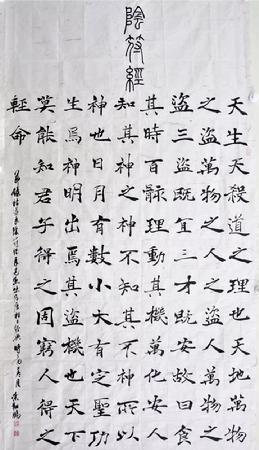 陰符經
天生天殺道之理也天地萬物
之盜萬物人之盜人萬物之
盜三盜既宜三才既安故曰食
其時百骸理動其機萬化安人
知其神之神不知其神所以
神也日月有數小大有定聖功
生焉神明出焉其盜機也天下
莫能知君子得之固窮人得之
輕命